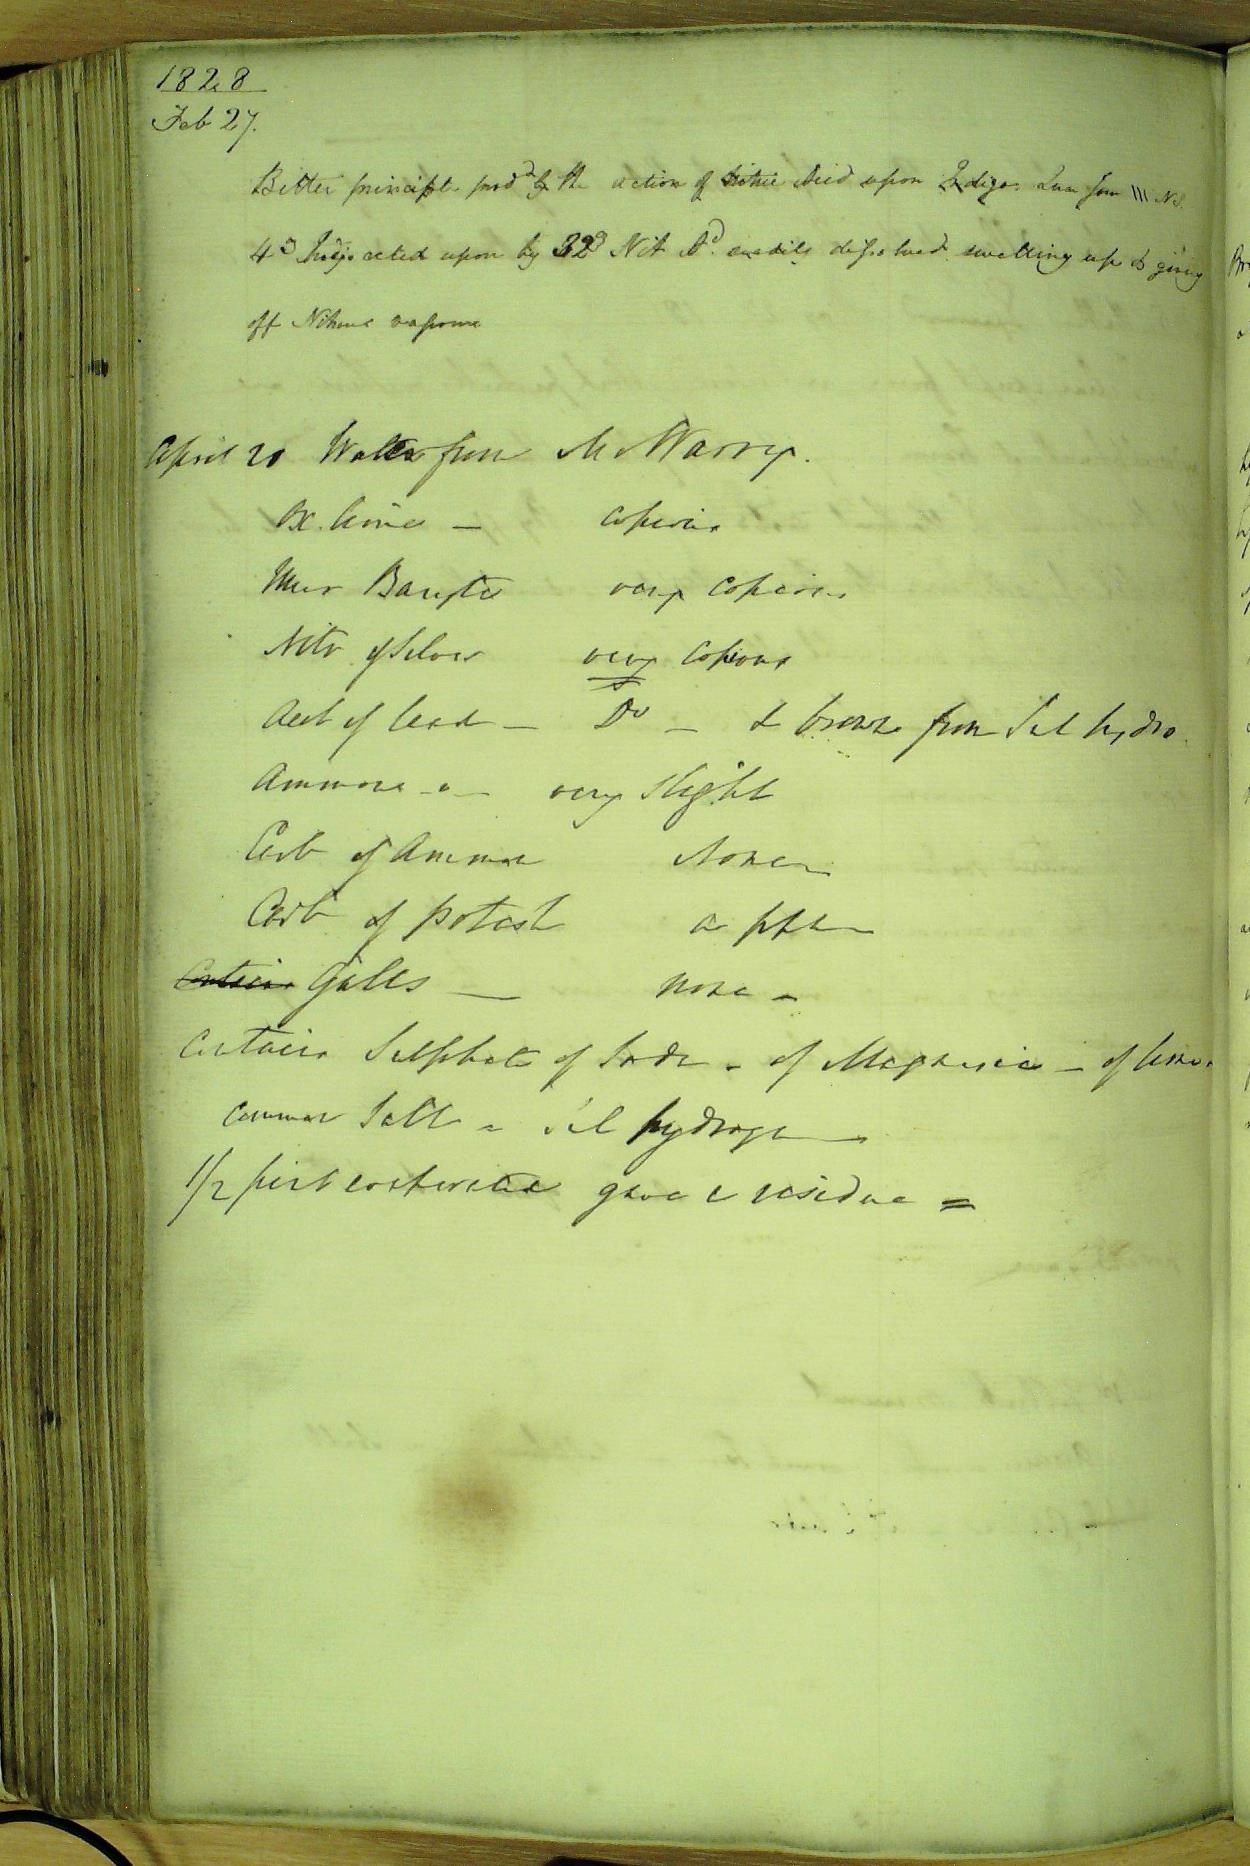 1828
Feb 27.
Bitter principle prodd by the action of Nitric Acid upon Indigo. Qua Jour III N.S.
4ʒ Indigo acted upon by 32ʒ Nit Ad. readily dissolved swelling up & giving
off Nitrous vapour
April 20 Water from Mr Warry.
Ox. Amm — copious
Mur Baryta very copious
Nitr of Silver very copious
Acet of lead — Do — & brown from Sul hydro
Ammonia — very slight
Carb of Ammon None
Carb of potash a ppt
Contains Galls — none —
Contains Sulphate of Soda - of Magnesia - of lime
common Salt - Sul hydrogen
1/2 pint evaporated gave a residue =